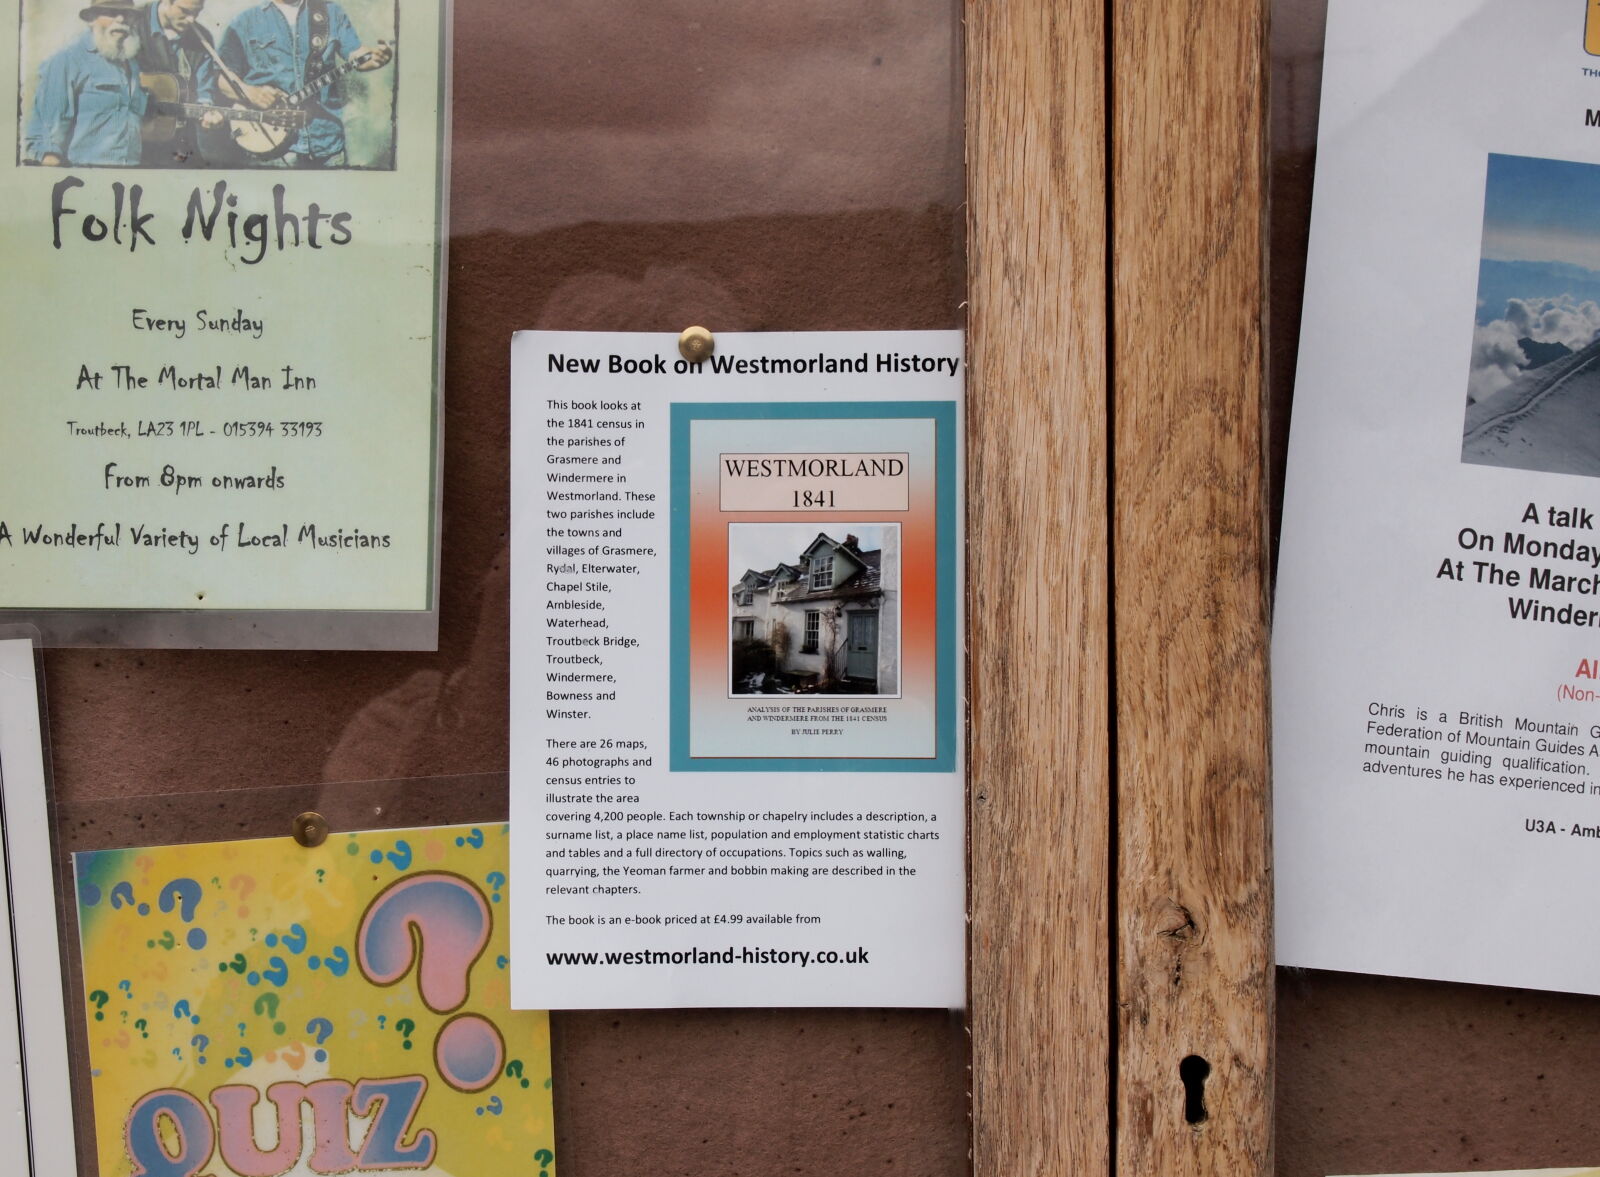 Folk Nights
Every Sunday
At The Mortal Man Inn
Troutbeck, LA23 1PL - 015394 33193
From 8pm onwards
A Wonderful Variety of Local Musicians
QUIZ
New Book on Westmorland History
This book looks at
the 1841 census in
the parishes of
Grasmere and
Windermere in
Westmorland. These
two parishes include
the towns and
villages of Grasmere,
Rydal, Elterwater,
Chapel Stile,
Ambleside,
Waterhead,
Troutbeck Bridge,
Troutbeck,
Windermere,
Bowness and
Winster.
There are 26 maps,
46 photographs and
census entries to
illustrate the area
covering 4,200 people. Each township or chapelry includes a description, a
surname list, a place name list, population and employment statistic charts
and tables and a full directory of occupations. Topics such as walling,
quarrying, the Yeoman farmer and bobbin making are described in the
relevant chapters.
The book is an e-book priced at £4.99 available from
www.westmorland-history.co.uk
WESTMORLAND
1841
ANALYSIS OF THE PARISHES OF GRASMERE
AND WINDERMERE FROM THE 1841 CENSUS
BY JULIE PERRY
A talk
On Monday
At The March
Winder
Al
(Non-
Chris is a British Mountain G
Federation of Mountain Guides A
mountain guiding qualification.
adventures he has experienced in
U3A - Amb